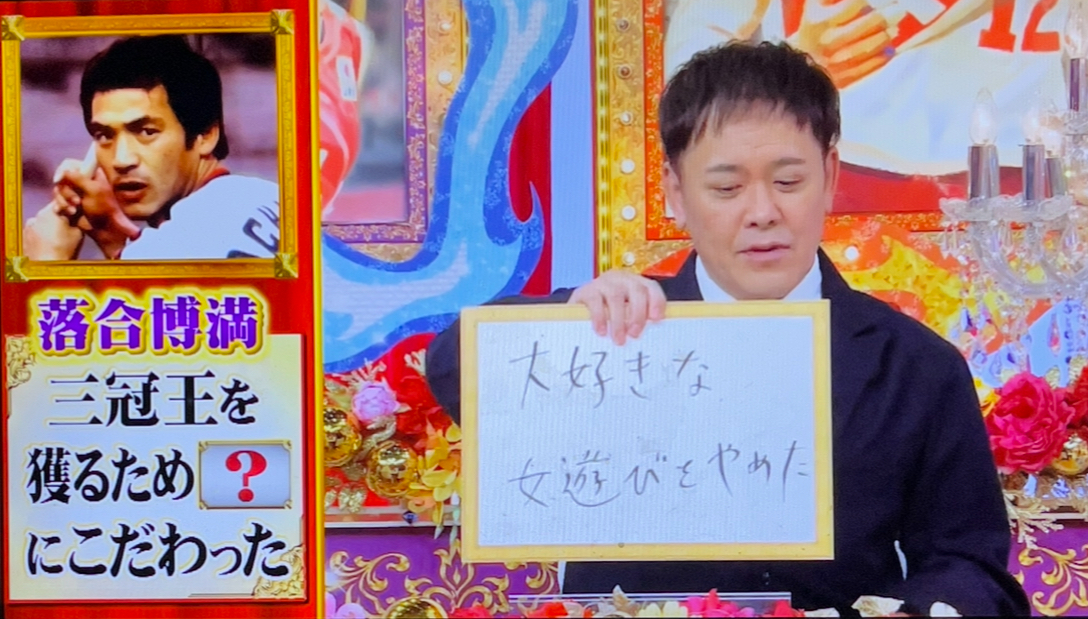 落合博満
三冠王を
獲るため?
にこだわった
大好きな
女遊びをやめた
12